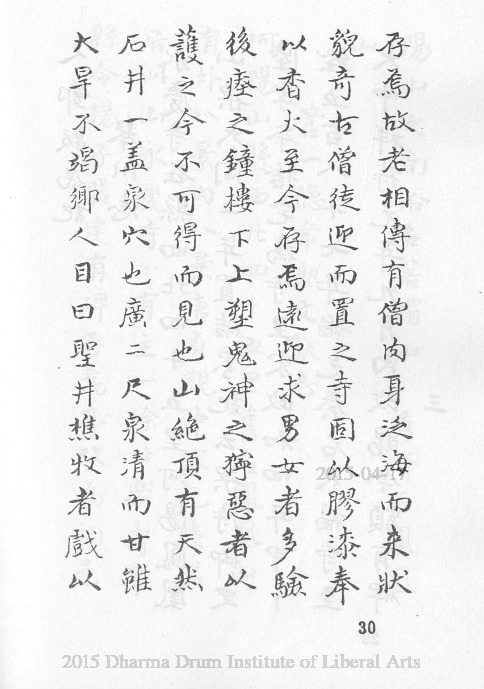 存焉故老相傳有僧肉身泛海而来狀
貌竒古僧徒迎而置之寺固以膠漆奉
以香火至今存焉遠迎求男女者多驗
後瘞之鐘樓下上塑鬼神之獰惡者以
護之今不可得而見也山絶頂有天然
石井一盖泉穴也廣二尺泉清而甘雖
大旱不竭鄉人目曰聖井樵牧者戲以
30
2015-04-17
2015 Dharma Drum Institute of Liberal Arts